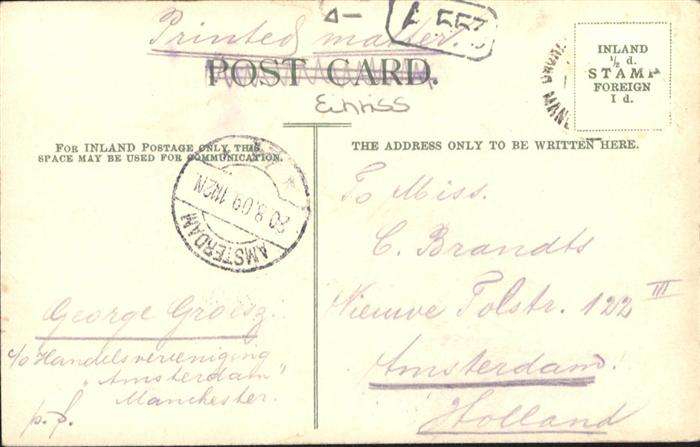 Printed matter.
A 557
POST CARD.
INLAND
½ d.
STAMP
FOREIGN
1 d.
MAN
FOR INLAND POSTAGE ONLY THIS
SPACE MAY BE USED FOR COMMUNICATION.
THE ADDRESS ONLY TO BE WRITTEN HERE.
AMSTERDAM
20 8.09 1112N
To Miss.
C. Brandts
Nieuwe Tolstr. 122 III
Amsterdam.
Holland
George Groesz.
c/o Handelsvereniging
"Amsterdam"
Manchester.
p. f.